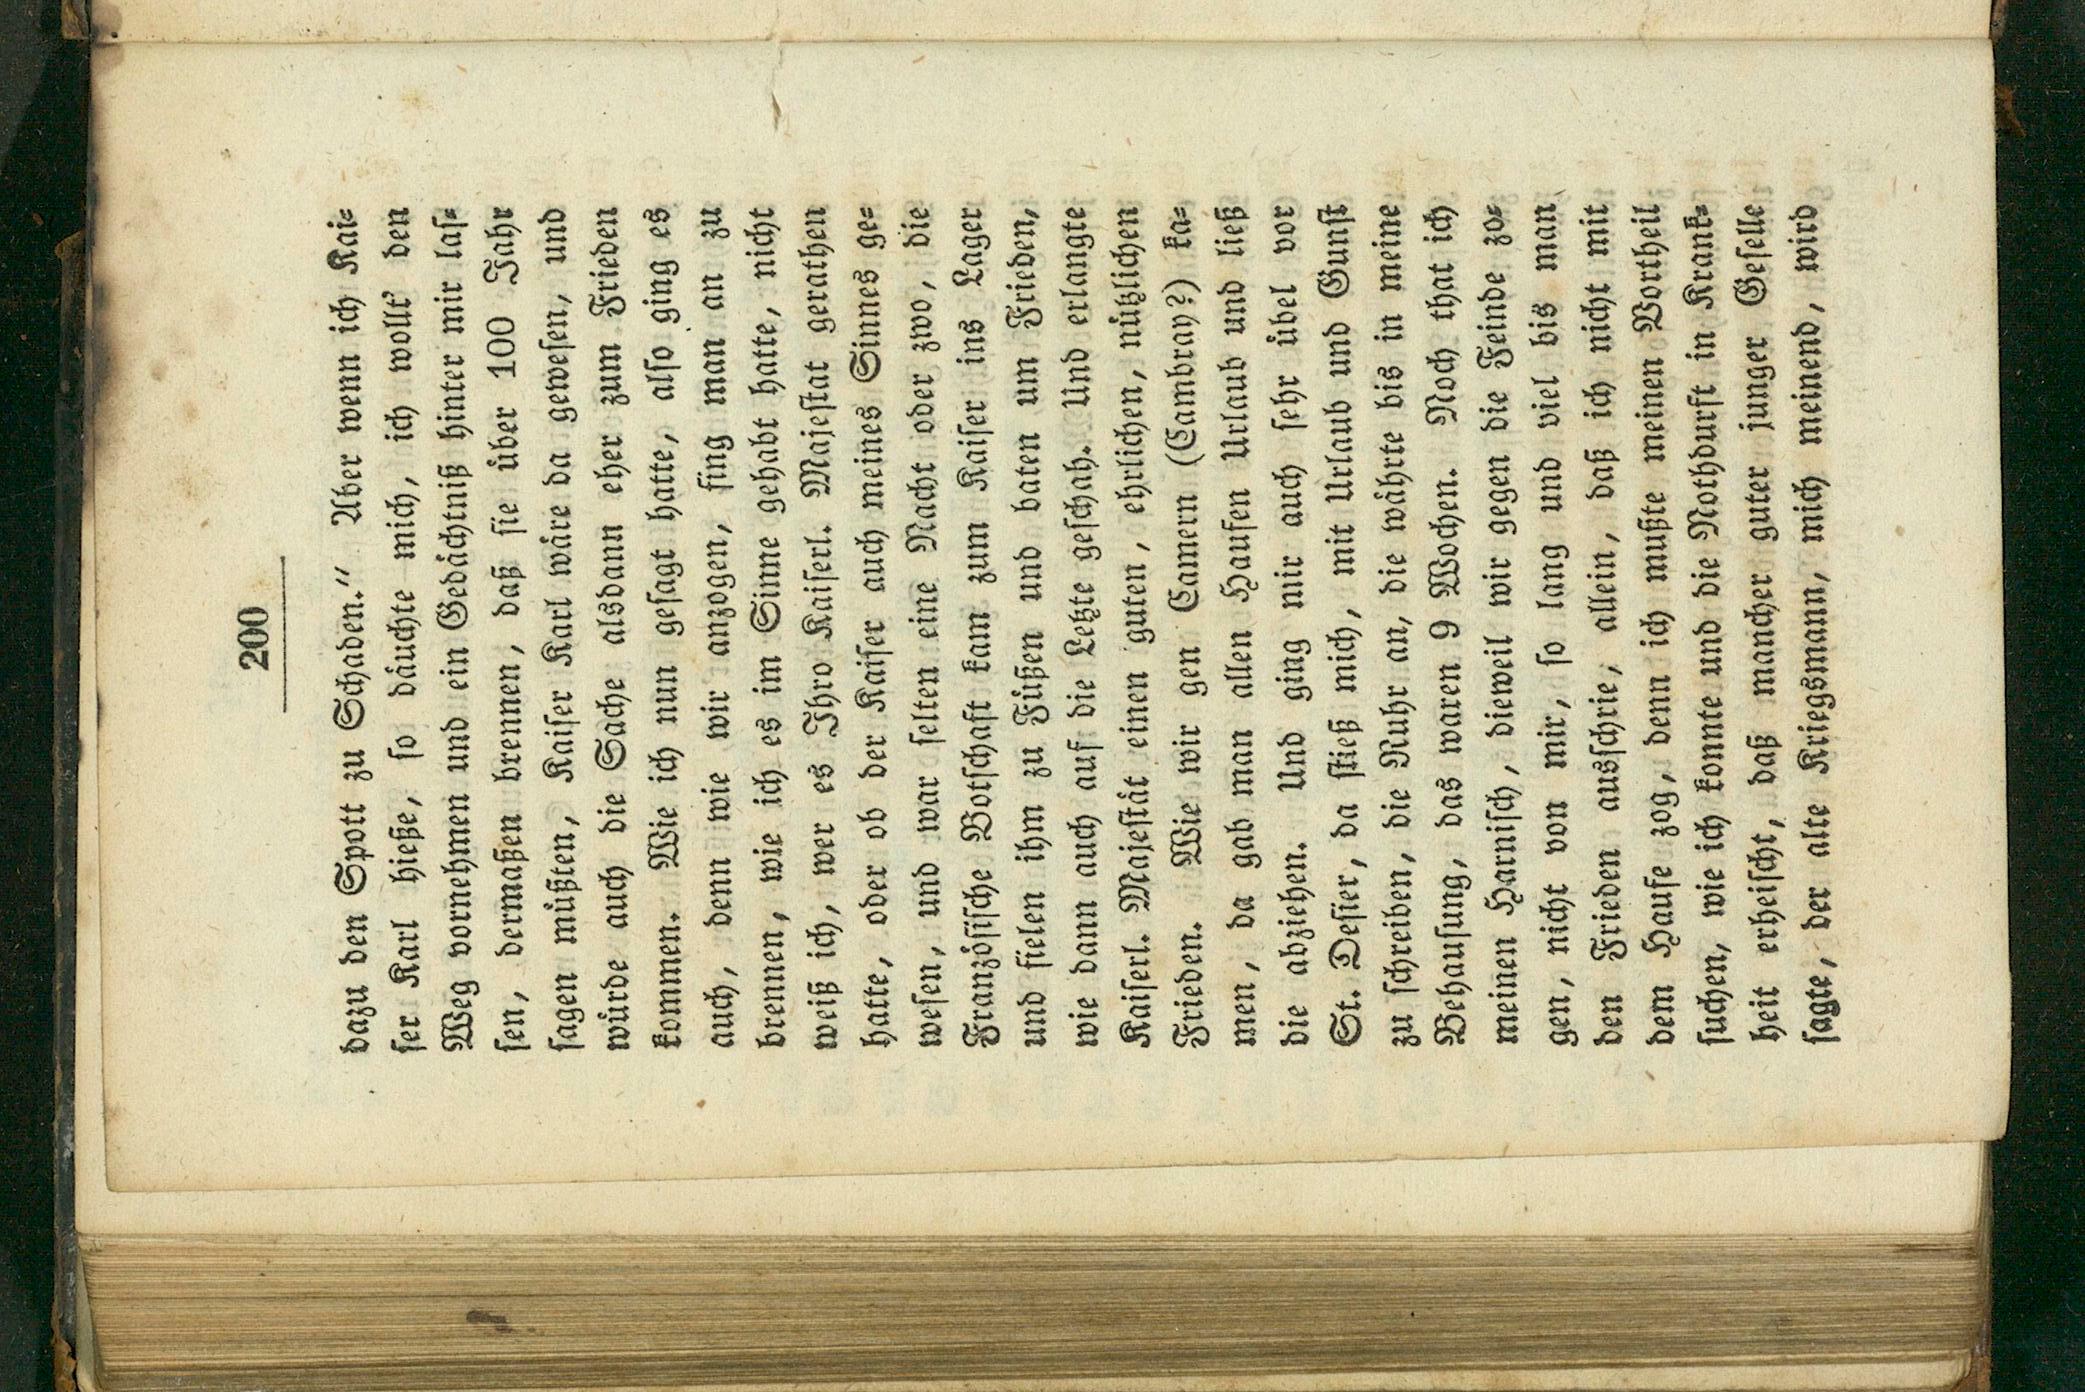 200
dazu den Spott zu Schaden.“ Aber wenn ich Kai=
ſer Karl hieße, ſo däuchte mich, ich wollt’ den
Weg vornehmen und ein Gedächtniß hinter mir laſ=
ſen, dermaßen brennen, daß ſie über 100 Jahr
ſagen müßten, Kaiſer Karl wäre da geweſen, und
würde auch die Sache alsdann eher zum Frieden
kommen. Wie ich nun geſagt hatte, alſo ging es
auch, denn wie wir anzogen, fing man an zu
brennen, wie ich es im Sinne gehabt hatte, nicht
weiß ich, wer es Ihro Kaiſerl. Majeſtat gerathen
hatte, oder ob der Kaiſer auch meines Sinnes ge=
weſen, und war ſelten eine Nacht oder zwo, die
Französiſche Botſchaft kam zum Kaiſer ins Lager
und fielen ihm zu Füßen und baten um Frieden,
wie dann auch auf die Letzte geſchah. Und erlangte
Kaiſerl. Majeſtät einen guten, ehrlichen, nützlichen
Frieden. Wie wir gen Camern (Cambray?) ka=
men, da gab man allen Haufen Urlaub und ließ
die abziehen. Und ging mir auch ſehr übel vor
St. Deſier, da ſtieß mich, mit Urlaub und Gunſt
zu ſchreiben, die Ruhr an, die währte bis in meine
Behauſung, das waren 9 Wochen. Noch that ich
meinen Harniſch, dieweil wir gegen die Feinde zo=
gen, nicht von mir, ſo lang und viel bis man
den Frieden ausſchrie, allein, daß ich nicht mit
dem Haufe zog, denn ich mußte meinen Vortheil
ſuchen, wie ich konnte und die Nothdurft in Krank=
heit erheiſcht, daß mancher guter junger Geſelle
ſagte, der alte Kriegsmann, mich meinend, wird